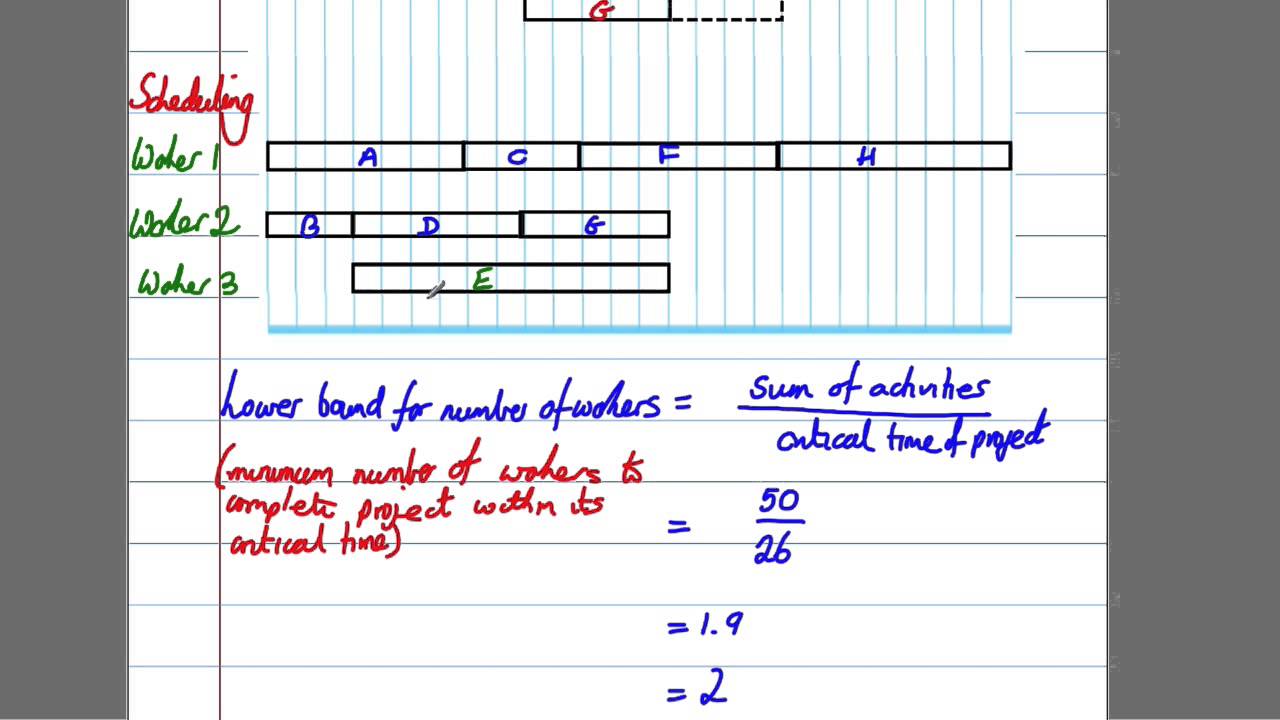 G
Scheduling
Worker 1 A C F H
Worker 2 B D G
Worker 3 E
Lower bound for number of workers = sum of activities
critical time of project
(minimum number of workers to
complete project within its
critical time)
= 50
26
= 1.9
= 2